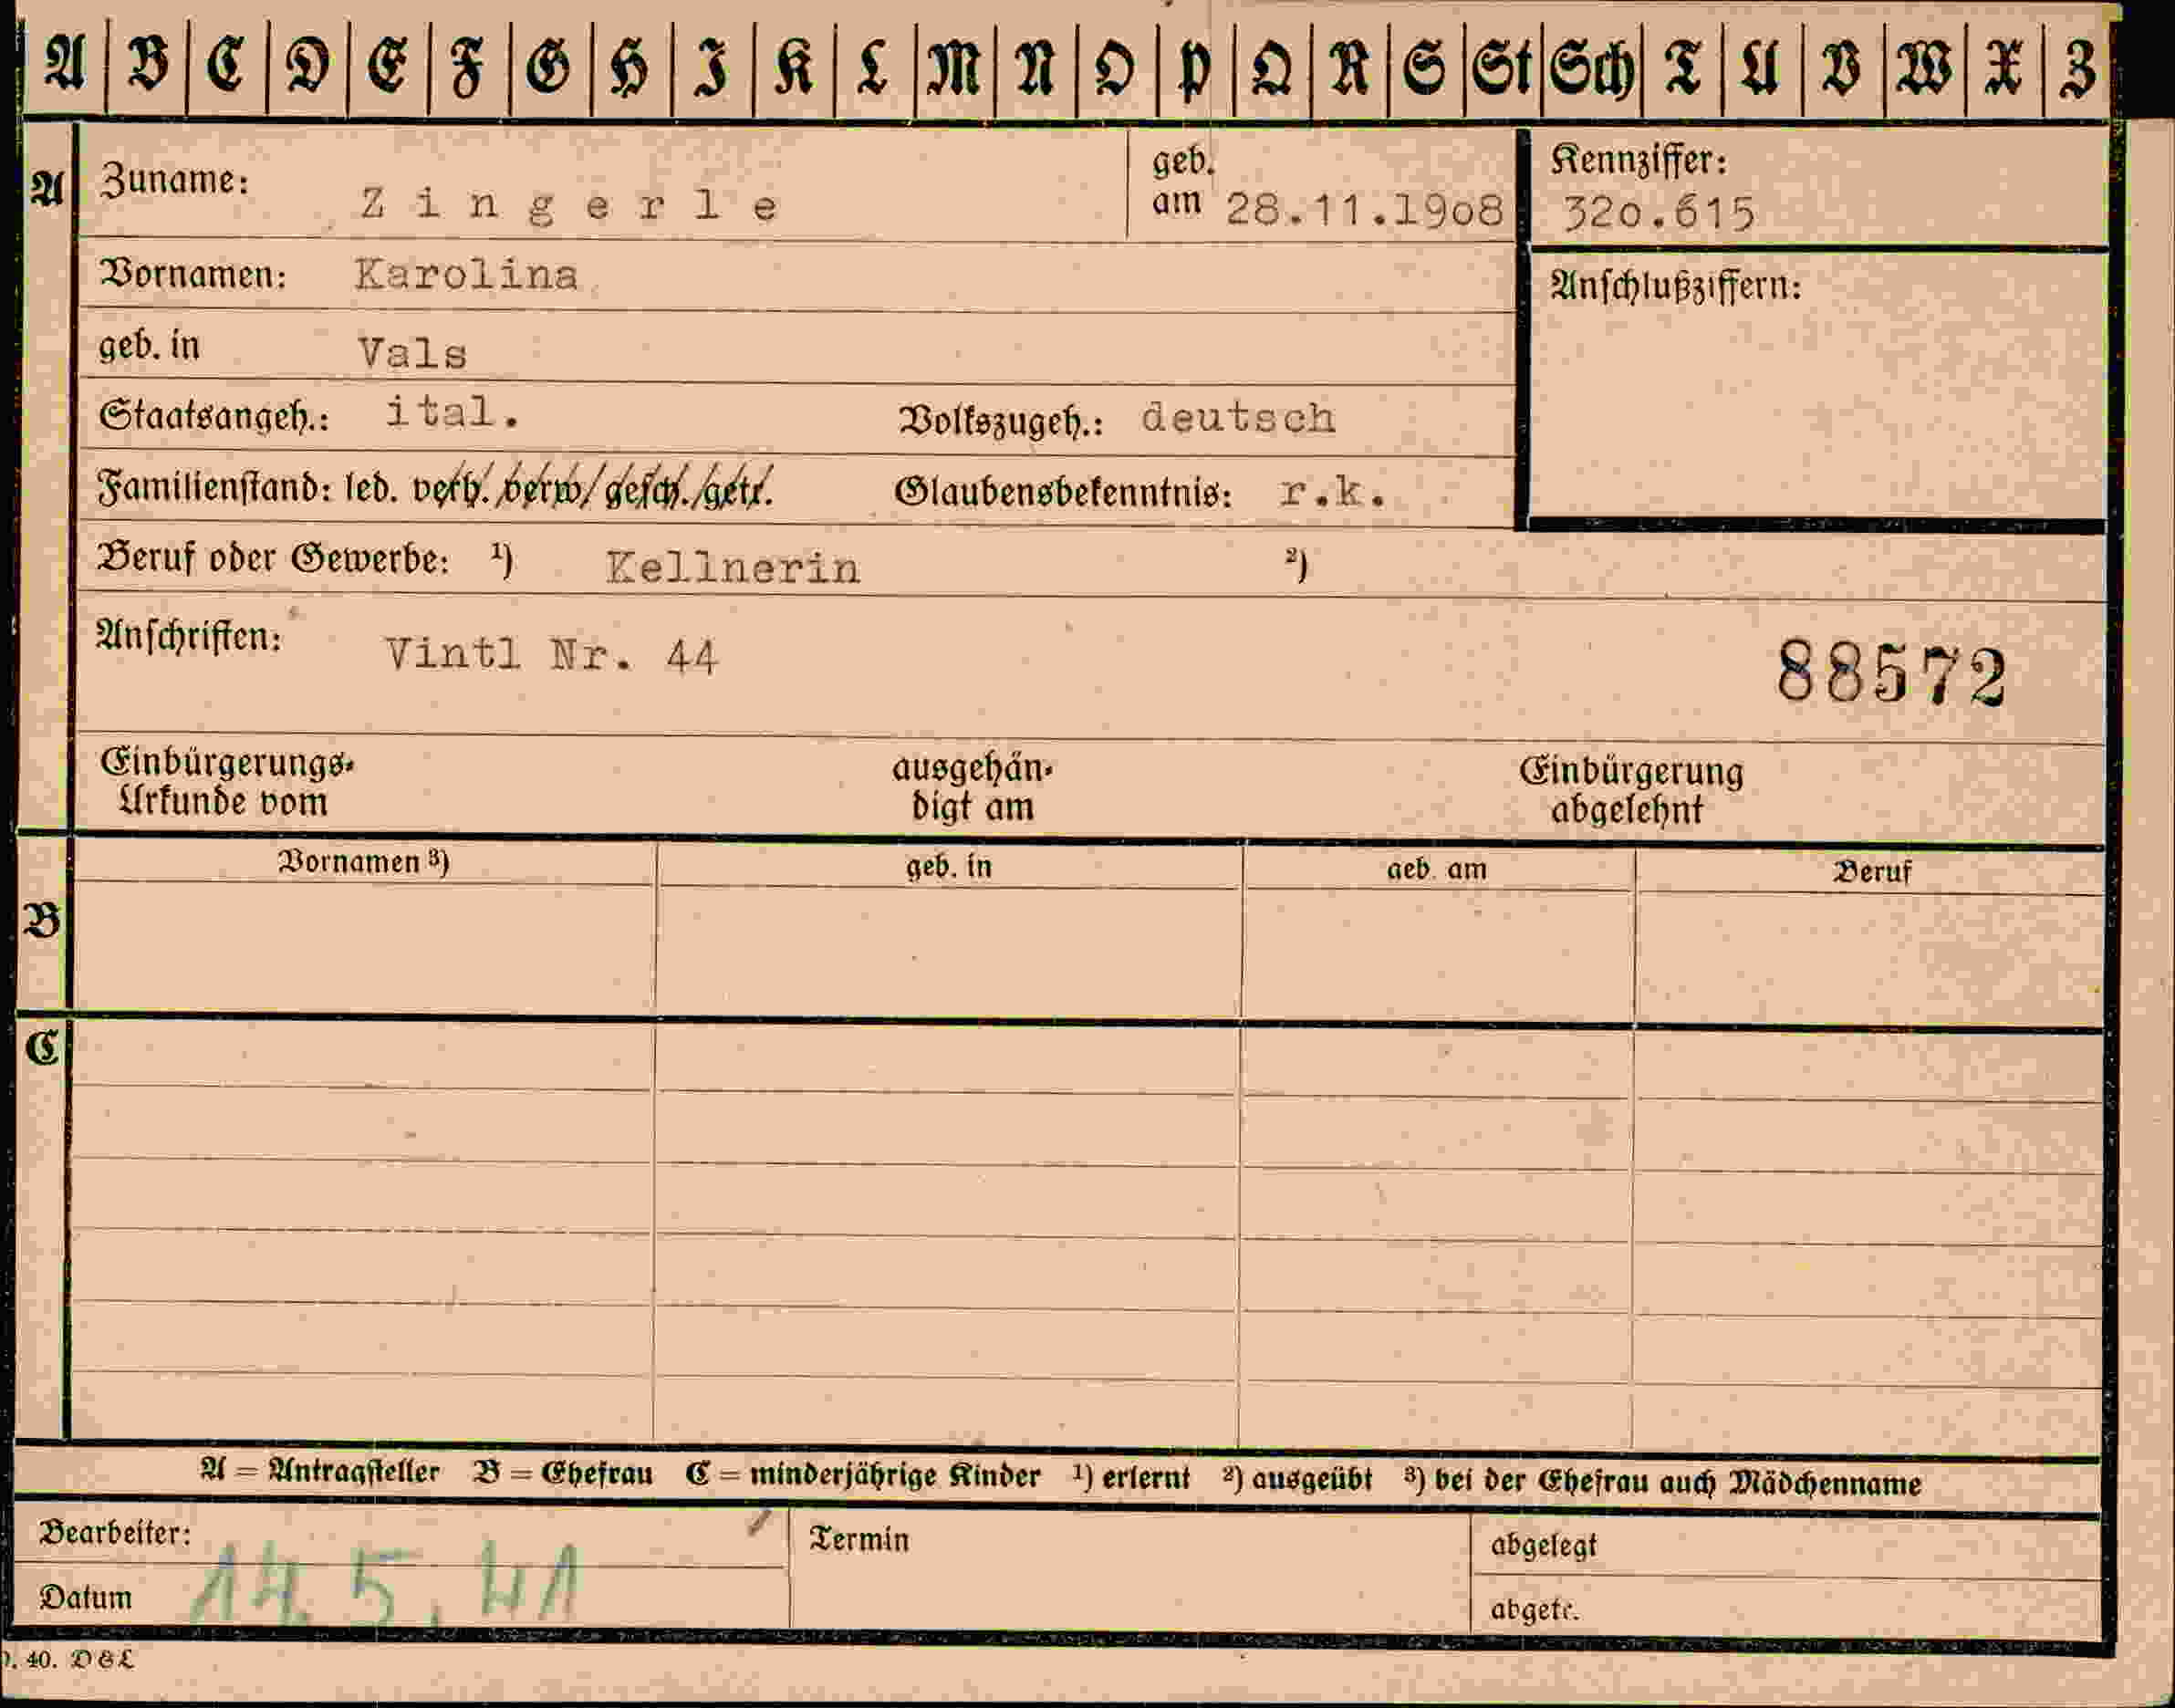 A B C D E F G H I K L M N O P Q R S St Sch T U V W X Z
A Zuname: Zingerle geb. am 28.11.19o8 Kennziffer: 32o.615
Vornamen: Karolina Anschlußziffern:
geb. in Vals
Staatsangeh.: ital. Volkszugeh.: deutsch
Familienstand: led. verh. verw. gesch. getr. Glaubensbekenntnis: r.k.
Beruf oder Gewerbe: ¹) Kellnerin ²)
Anschriften: Vintl Nr. 44 88572
Einbürgerungs- ausgehän- Einbürgerung
Urkunde vom digt am abgelehnt
Vornamen ³) geb. in geb. am Beruf
B
C
A = Antragsteller B = Ehefrau C = minderjährige Kinder ¹) erlernt ²) ausgeübt ³) bei der Ehefrau auch Mädchenname
Bearbeiter: Termin abgelegt
Datum 5.41 abgetr.
40. D&L